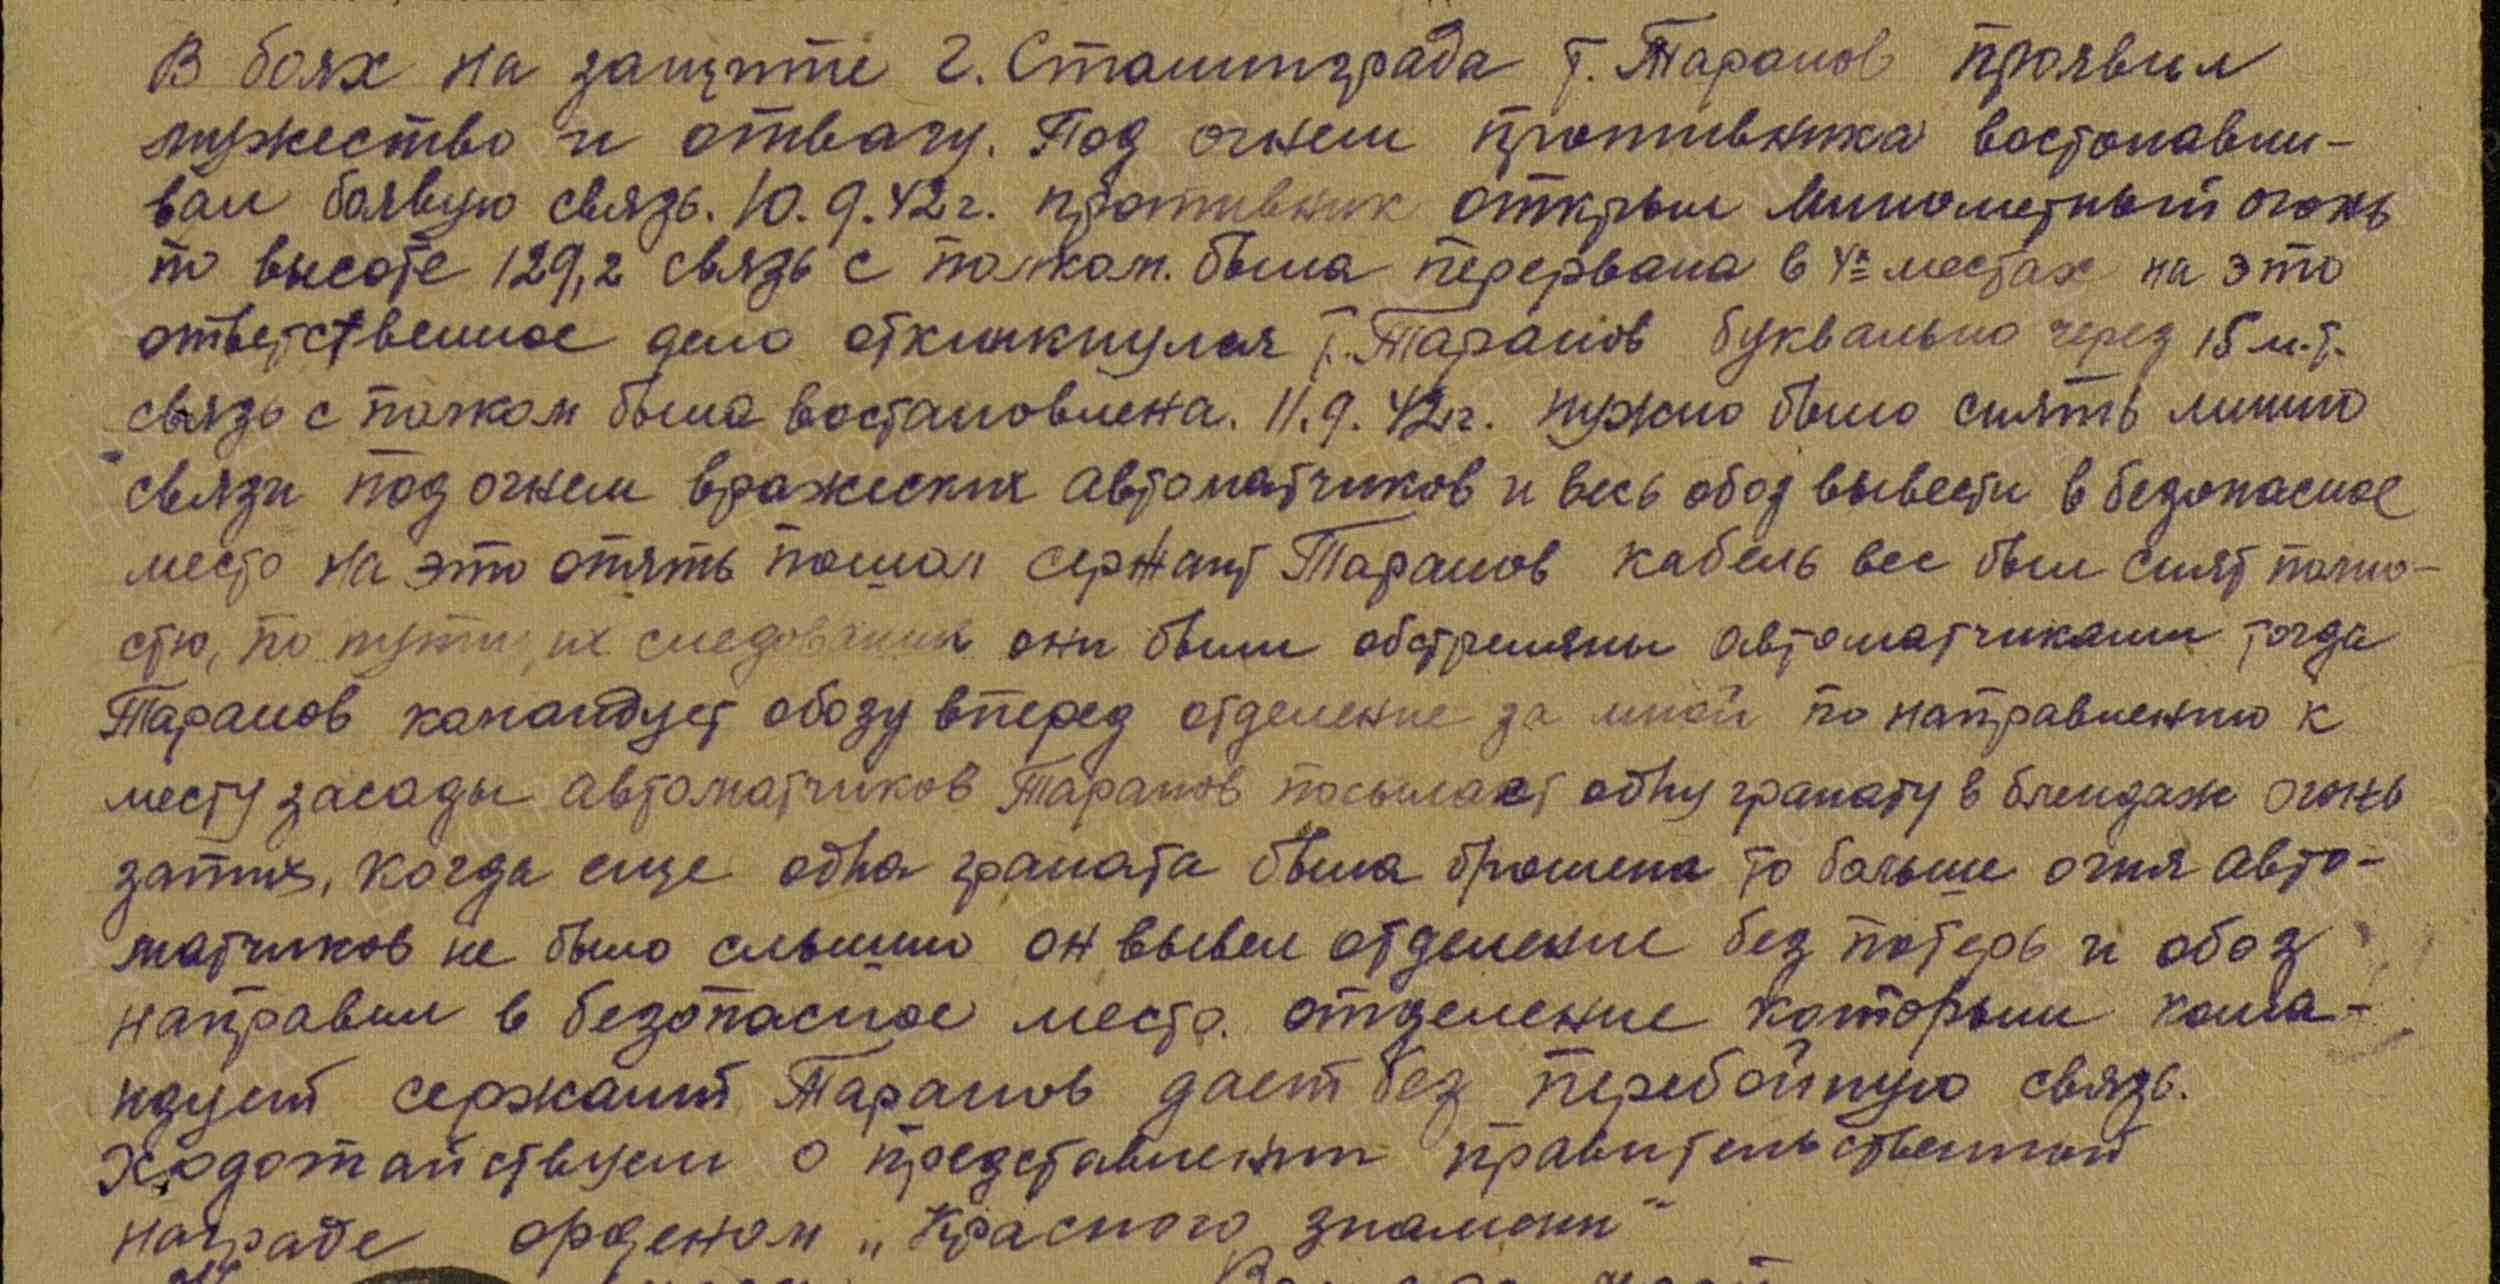 В боях на защите г. Сталинграда т. Таранов проявил
мужество и отвагу. Под огнем противника востонавли-
вал боявую связь. 10.9.42г. противник открыл минометный огонь
по высоте 129,2 связь с полком. была перервана в 4х местах на это
ответственное дело откликнулся т. Таранов буквально через 15 м.т.
связь с полком была востановлена. 11.9.42г. нужно было снять линию
связи под огнем вражеских автоматчиков и весь обоз вывести в безопасное
место на это опять пошол сержант Таранов кабель вес был снят полно-
стю, по пути их следования они были обстреляны автоматчиками тогда
Таранов командует обозу вперед отделение за мной по направлению к
месту засады автоматчиков Таранов посылает одну гранату в блендаж огонь
затих, когда еще одна граната была брошена то больше огня авто-
матчиков не было слышно он вывел отделение без потерь и обоз
направил в безопасное место. отделение которым кома-
ндует сержант Таранов дает без перебойную связь.
Ходотайствуем о представлении правительственной
награде орденом „Красного знамени"